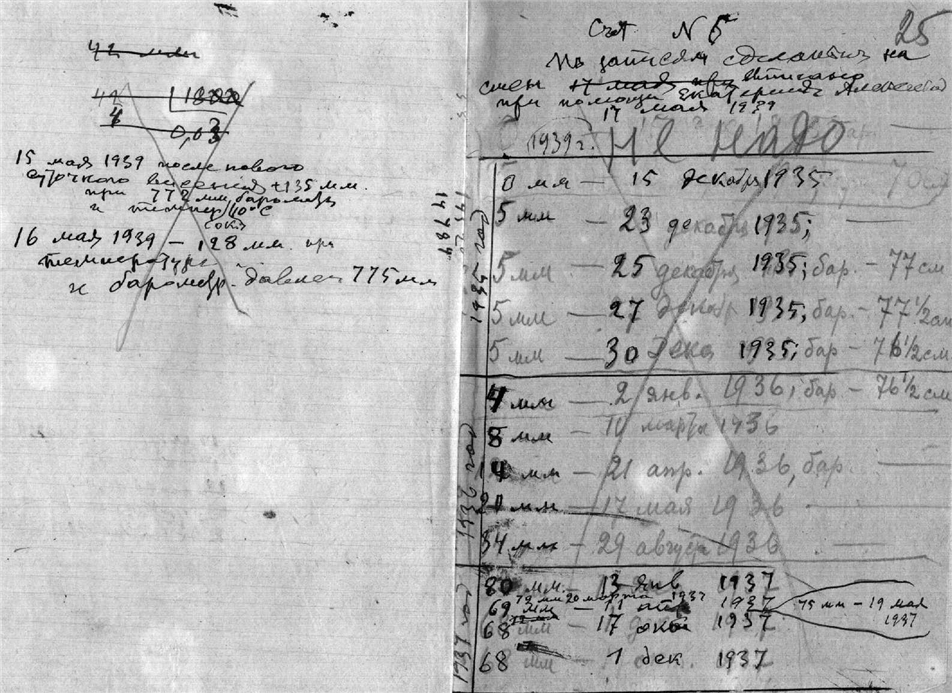 42 мм
42 | 1800
4
0,03
15 мая 1939 после нового
+135 мм.
при 772 мм. баром
и темпер 10°С
16 мая 1939 — 128 мм. при
температуре
и баромэр. давлен 775 мм
25
Счт N 5
По записям сделантым на
17 мая при
при помощи Екатерины Алексеевны
17 мая 1939
(1939 г.) не надо
1935 год
0 мм — 15 декабря 1935
5 мм 23 декабря 1935;
5 мм — 25 декабря 1935; бар. — 77 см
5 мм — 27 декабр 1935; бар. — 77 1/2 см
5 мм — 30 дека 1935; бар — 76 1/2 см
1936 год
4 мм — 2 янв. 1936, бар — 76 1/2 см
8 мм — 11 марта 1936
14 мм — 21 апр. 1936, бар. —
21 мм — 17 мая 1936 —
34 мм — 29 августа 1936
1937 год
80 мм — 13 янв 1937
72 мм 20 марта 1937
69 мм — 11 1937
75 мм — 19 мая
1937
68 мм — 17 1937
68 мм 1 дек. 1937